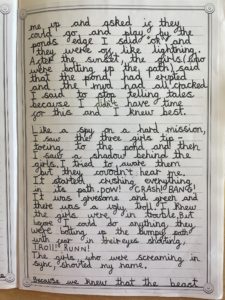 me up and asked if they
could go and play by the
ponds edge I said "ok" and
they were off like lightning.
After the sunset, the girls (who
were bolting up the path) said
that the pond had erupted
and the mud had all cracked
I said to stop telling tales
because I didn't have time
for this and I knew best.
Like a spy on a hard mission,
I saw the three girls tip-
toeing to the pond and then
I saw a shadow behind the
girls I tried to aware them
but they couldn't hear me.
It started crushing everything
in its path. POW! CRASH! BANG!
It was gruesome and green and
there was a ugly troll. I knew
the girls were in trouble. But
before I could do anything, they
were bolting up the bumpy path
with just in their eyes shouting,
"TROLL!" "RUNN!"
The girls, who were screaming in
sync, shouted my name.
Because we knew that the beast